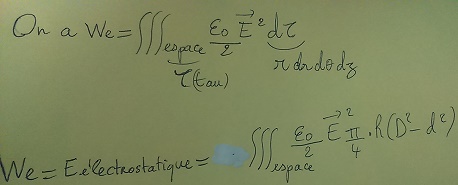 On a We = ∭espace ε₀/2 E⃗² dτ
τ(tau)
r dr dθ dz
We = E.électrostatique = ∭espace ε₀/2 E⃗² π/4 . h(D² - d²)